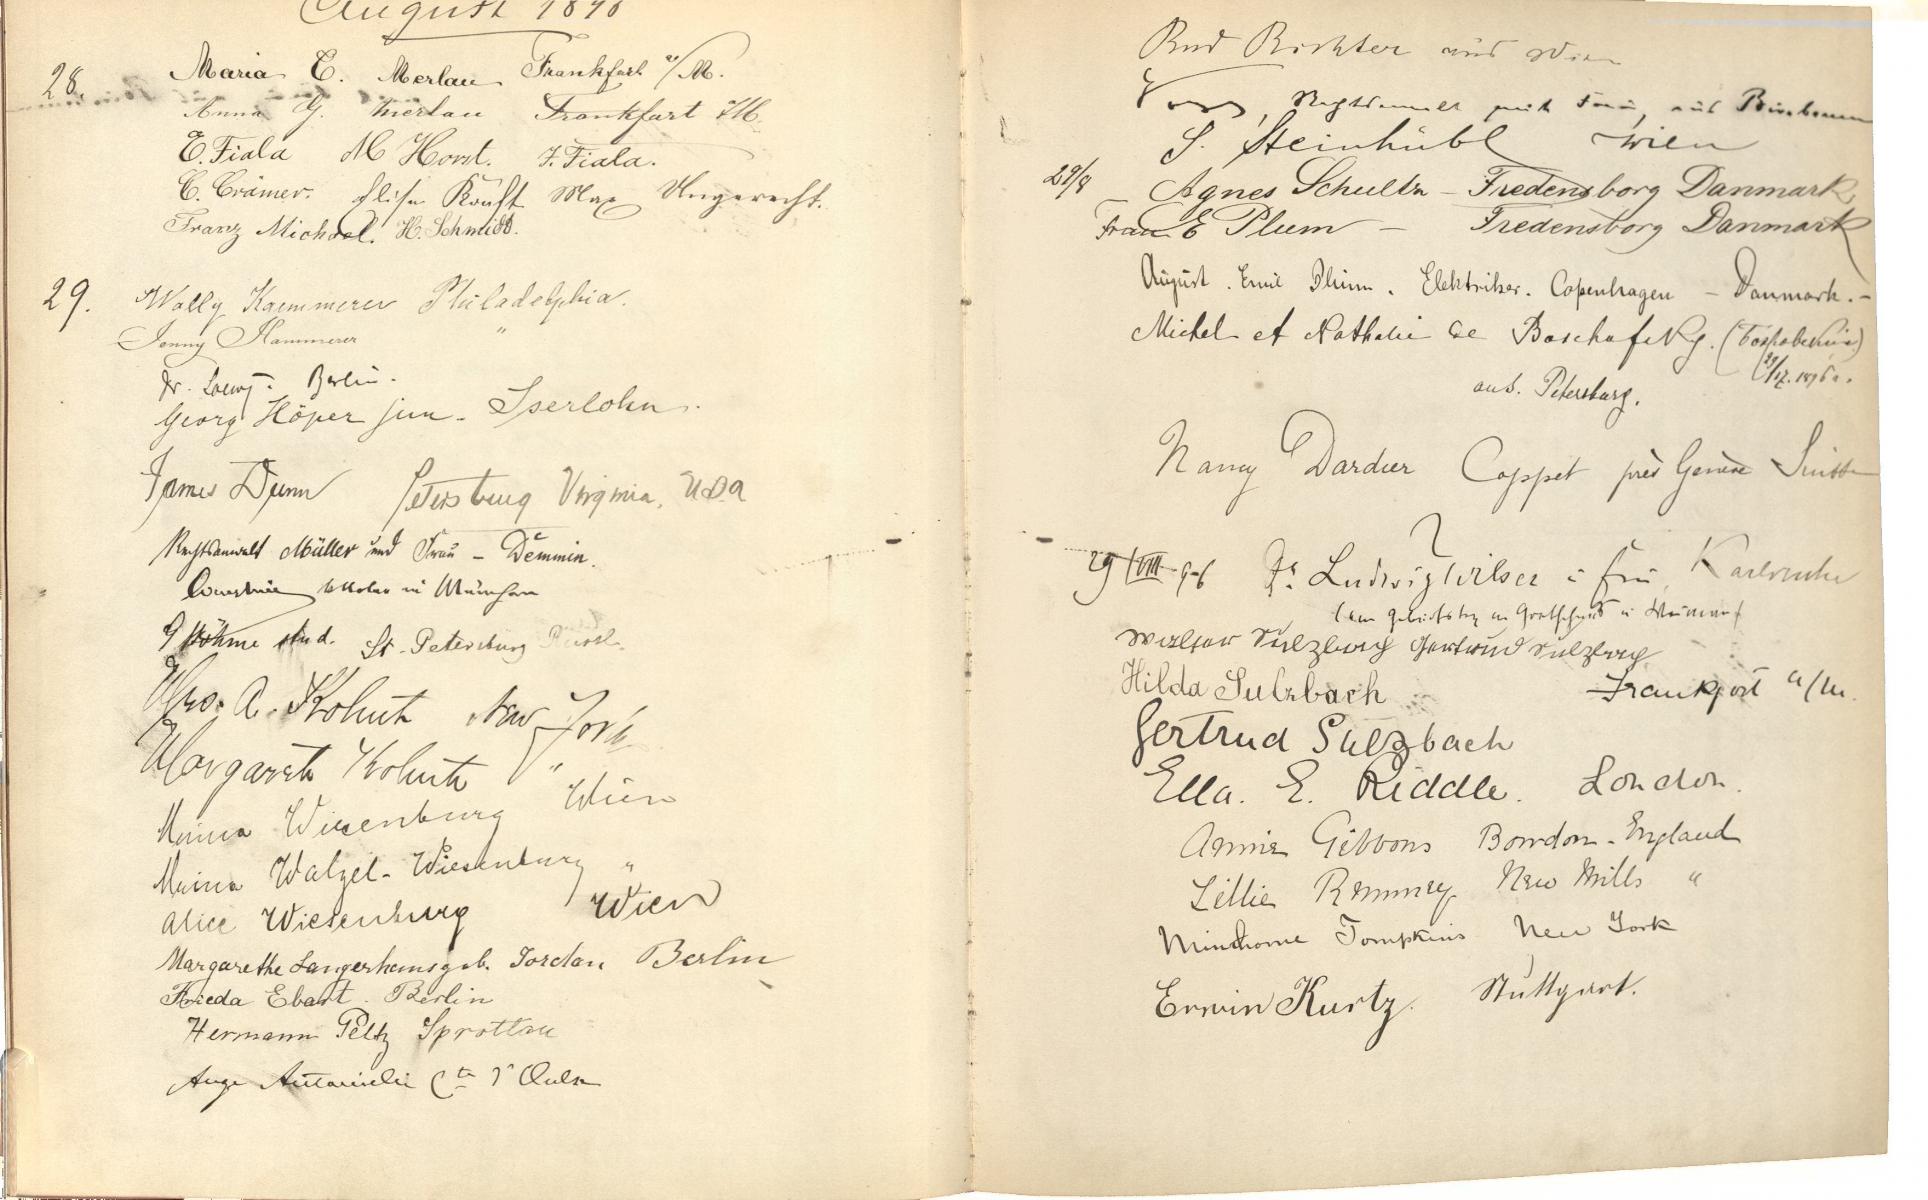 August 1896
28. Maria C. Merlau Frankfurt a/M.
Anna G. Merlau Frankfurt a/M.
E. Fiala M Horst. F. Fiala.
C. Crämer. Elise Kraft Max Ungerecht.
Franz Michael. H. Schmidt.
29. Wally Kaemmerer Philadelphia.
Jenny Kammerer "
Dr. Loewy. Berlin.
Georg Höper jun. Iserlohn.
James Dunn Petersburg Virginia, USA
Rechtsanwalt Müller und Frau – Demmin.
in München
Böhme stud. St. Petersburg Russl.
Mrs. A. Kohut New York
Margareth Kohut "
Minna Wiesenburg Wien
Minna Walzel-Wiesenburg "
Alice Wiesenburg Wien
Margarethe Langerhans geb. Jordan, Berlin
Frieda Ebart. Berlin
Hermann Peltz Sprottau
Richter aus Wien
Rechtsanwalt mit Frau, aus
S. Steinhübl Wien
29/8 Agnes Schultz – Fredensborg Danmark,
Frau E Plum – Fredensborg Danmark
August. Emil Plum. Elektriker. Copenhagen – Danmark. –
Michel et Nathalie de
aus. Petersburg.
Nancy Dardier Coppet près Genève Suisse
29/VIII 96 Dr. Ludwig Wilser u Frau, Karlsruhe
Sulzbach Gertrud Sulzbach
Hilda Sulzbach Frankfort a/M.
Gertrud Sulzbach
Ella. E. Riddle. London.
Annie Gibbons Bowdon. England
Lillie Remmey New Mills "
Minthorne Tompkins New York
Erwin Kurtz. Stuttgart.